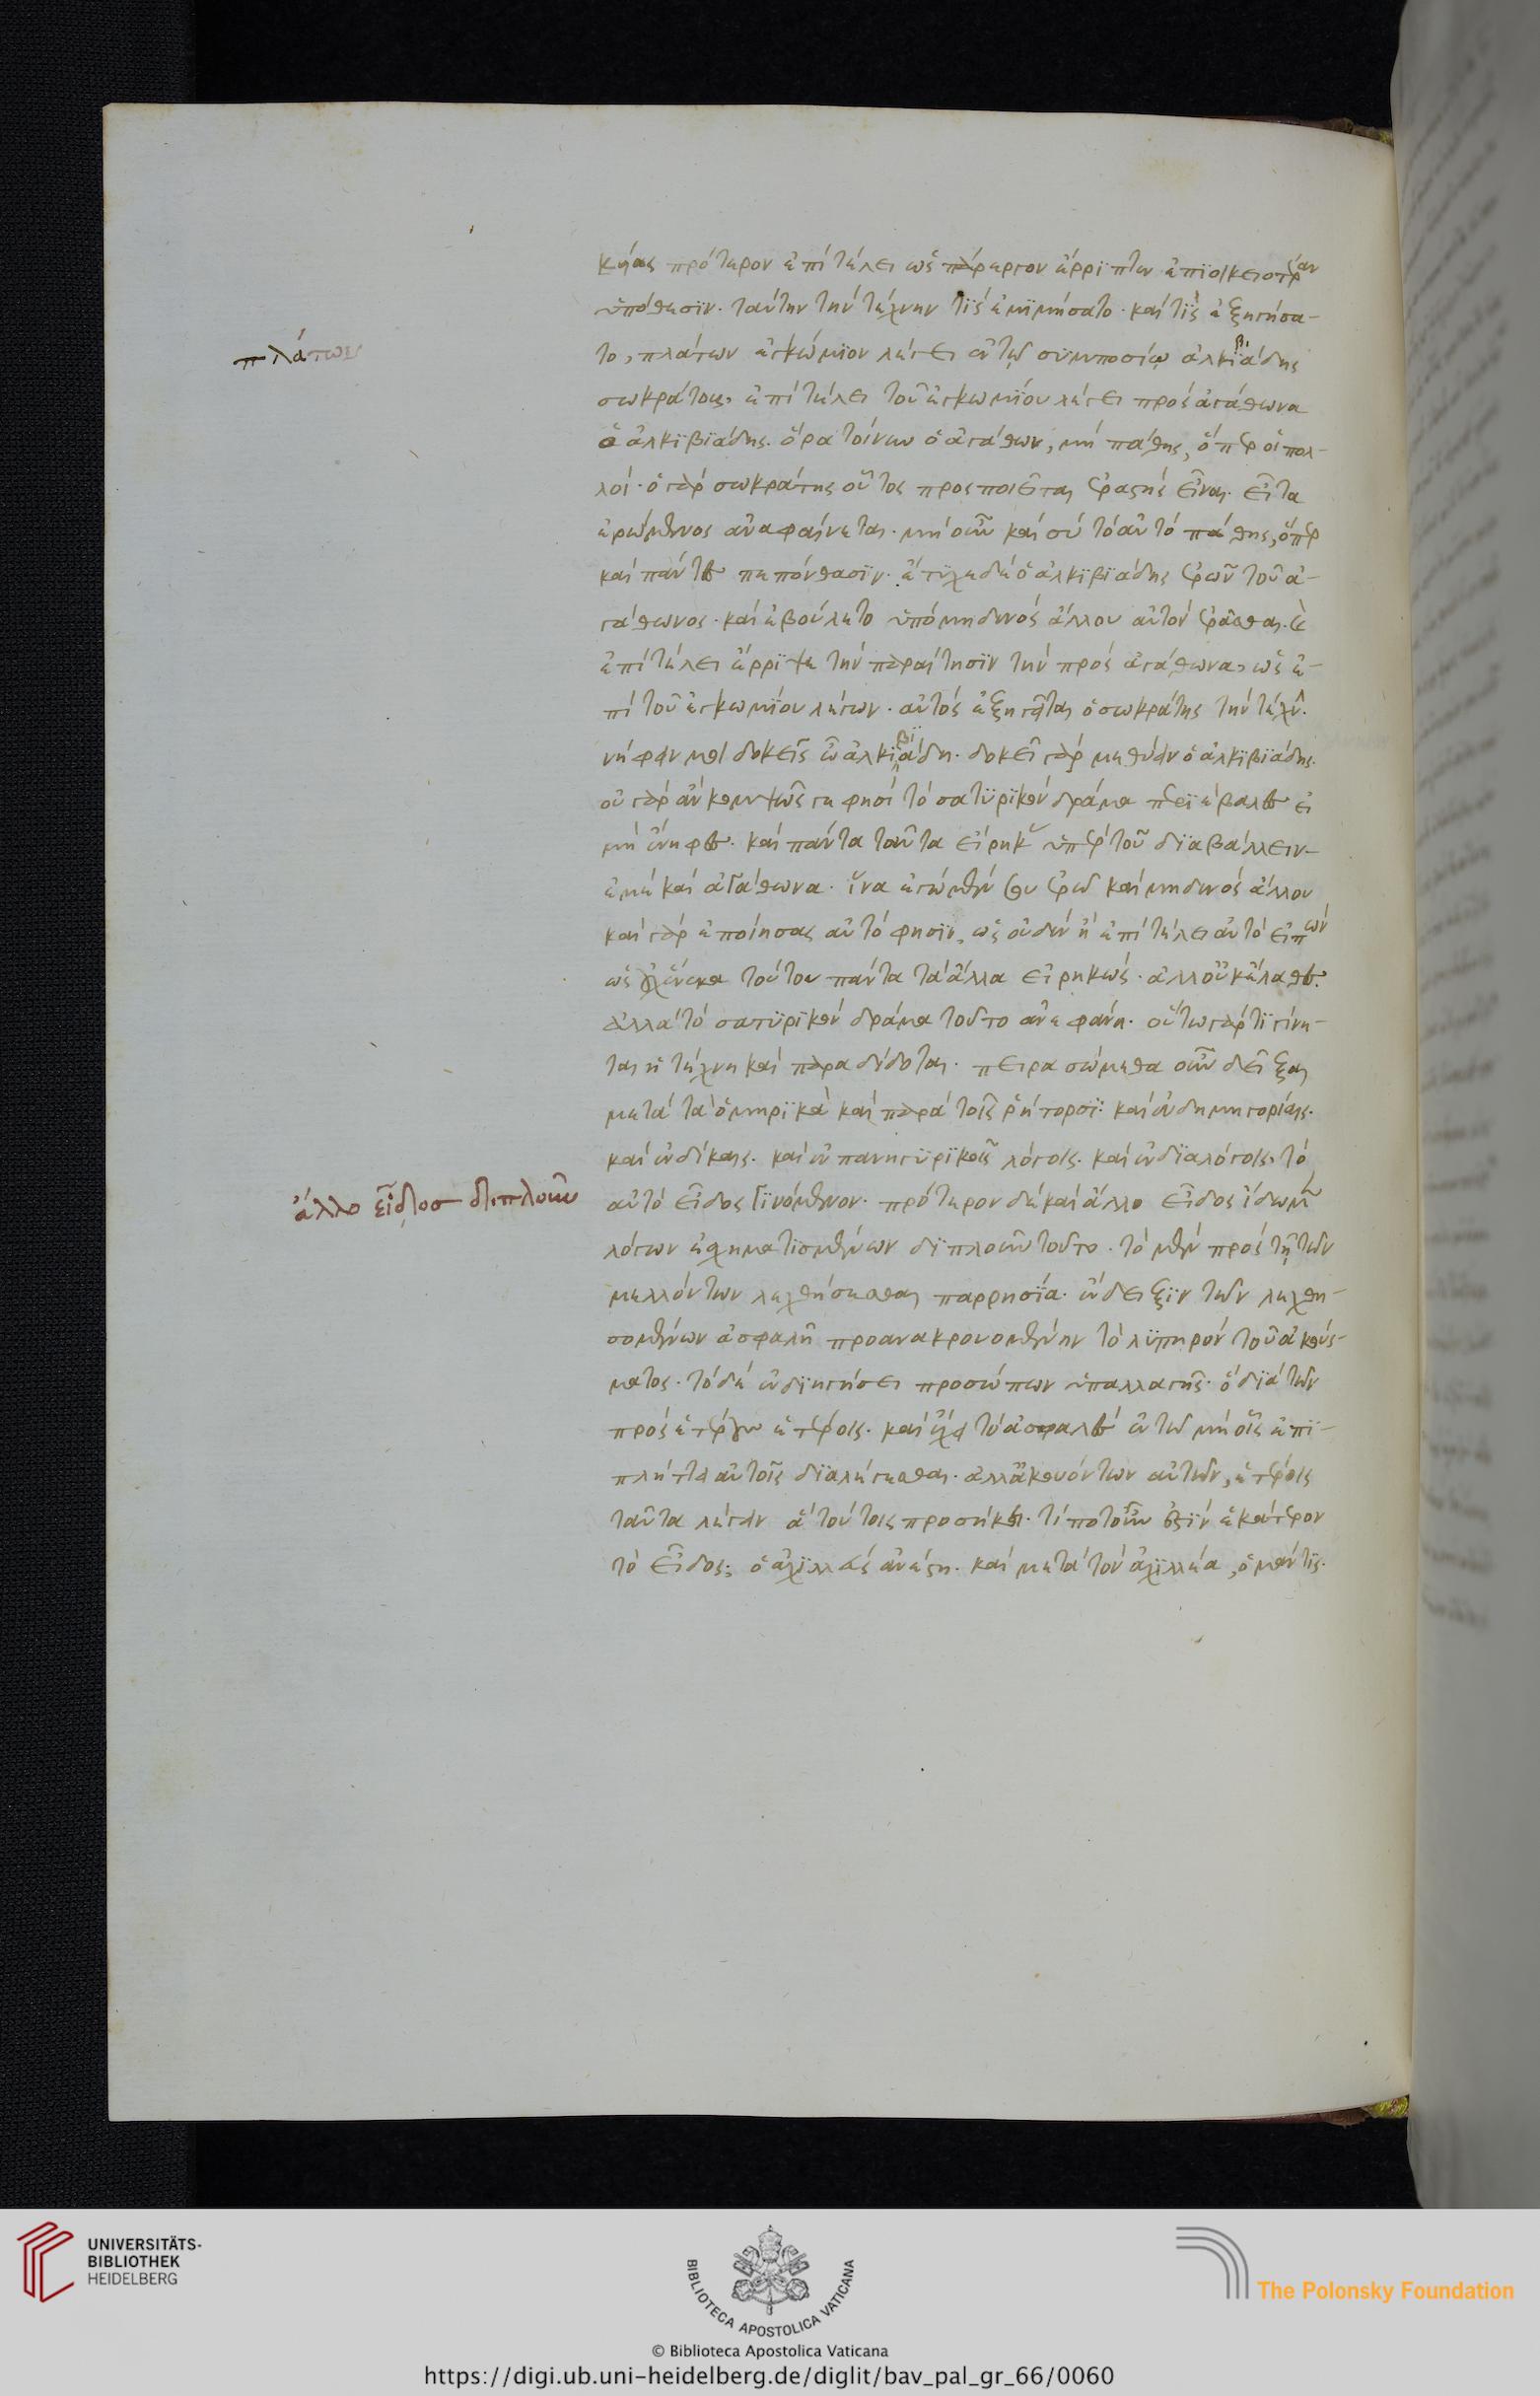 κήας πρότερον ἐπὶ τέλει ὡς πάρεργον ἔρριπτεν ἐπὶ οἰκειοτέραν
ὑπόθεσϊν. ταύτην τὴν τέχνην τίς ἐμϊμήσατο. καὶ τίς ἐξηγήσα-
πλάτων
το, πλάτων ἐγκώμϊον λέγει ἐν τῷ συμποσίῳ ἀλκιβϊάδης
σωκράτους, ἐπὶ τέλει τοῦ ἐγκωμΐου λέγει πρὸς ἀγάθωνα
ὁ ἀλκϊβϊάδης. ὅρα τοίνυν ὁ ἀγάθων, μὴ πάθης, ὅπερ οἱ πολ-
λοί. ὁ γὰρ σωκράτης οὗτος προσποιεῖται ἐραστὴς εἶναι. εἶτα
ἐρώμενος ἀναφαίνεται. μὴ οὖν καὶ σὺ τὸ αὐτὸ πάθης, ὅπερ
καὶ πάντες πεπόνθασϊν. ἔτϋχε δὲ ὁ ἀλκϊβϊάδης ἐρῶν τοῦ ἀ-
γάθωνος. καὶ ἐβούλετο ὑπὸ μηδενὸς ἄλλου αὐτὸν ἐρᾶσθαι. καὶ
ἐπὶ τέλει ἔρρϊψε τὴν παραίτησϊν τὴν πρὸς ἀγάθωνα, ὡς ἐ-
πὶ τοῦ ἐγκωμΐου λέγων. αὐτὸς ἐξηγεῖται ὁ σωκράτης τὴν τέχνην.
νήφειν μοι δοκεῖς ὦ ἀλκιβϊάδη. δοκεῖ γὰρ μεθύειν ὁ ἀλκϊβϊάδης.
οὐ γὰρ ἂν κομψῶς γε φησὶ τὸ σατϋρϊκὸν δρᾶμα περϊέβαλες εἰ
μὴ ἔνηφες. καὶ πάντα ταῦτα εἴρηκας ὑπὲρ τοῦ δϊαβάλλειν
ἐμὲ καὶ ἀγάθωνα. ἵνα ἐγὼ μὲν σου ἐρῶ καὶ μηδενὸς ἄλλου
καὶ γὰρ ἐποίησας αὐτὸ φησϊν, ὡς οὐδὲν ἢ ἐπὶ τέλει αὐτὸ εἰπὼν
ὡς οὐχ ἕνεκα τούτου πάντα τὰ ἄλλα εἰρηκώς. ἀλλ οὐκ ἔλαθες.
ἀλλὰ τὸ σατϋρϊκὸν δρᾶμα τοῦτο ἀνεφάνη. οὕτω γὰρ τϊ γίνε-
ται ἡ τέχνη καὶ παραδίδοται. πειρασώμεθα οὖν δεῖξαι
μετὰ τὰ ὁμηρϊκὰ καὶ παρὰ τοῖς ῥήτορσϊ. καὶ ἐν δημηγορίαις.
καὶ ἐν δίκαις. καὶ ἐν πανηγϋρϊκοῖς λόγοις. καὶ ἐν δϊαλόγοις, τὸ
ἄλλο εἶδος διπλοῦν
αὐτὸ εἶδος γϊνόμενον. πρότερον δὲ καὶ ἄλλο εἶδος ἴδωμεν
λόγων ἐσχηματϊσμένων δϊπλοῦν τοῦτο. τὸ μὲν πρὸς τῇ τῶν
μελλόντων λεχθήσεσθαι παρρησΐα. ἔνδειξϊν τῶν λεχθη-
σομένων ἀσφαλῆ προανακρουομένην τὸ λϋπηρὸν τοῦ ἀκούσ-
ματος. τὸ δὲ ἐν δϊηγήσει προσώπων ὑπαλλαγῆς. ὃ δϊὰ τῶν
πρὸς ἑτέρων ἑτέροις. καὶ ἔχει τὸ ἀσφαλὲς ἐν τῷ μὴ οἷς ἐπϊ-
πλήττει αὐτοῖς δϊαλέγεσθαι. ἀλλ ἀκουόντων αὐτῶν, ἑτέροις
ταῦτα λέγειν ἃ τούτοις προσήκει. τί ποτ οὖν ἐστϊν ἑκάτερον
τὸ εἶδος; ὁ ἀχϊλλεὺς ἀνέστη. καὶ μετὰ τὸν ἀχϊλλέα, ὁ μάντϊς.
UNIVERSITÄTS-
BIBLIOTHEK
HEIDELBERG
BIBLIOTECA APOSTOLICA VATICANA
The Polonsky Foundation
© Biblioteca Apostolica Vaticana
https://digi.ub.uni-heidelberg.de/diglit/bav_pal_gr_66/0060